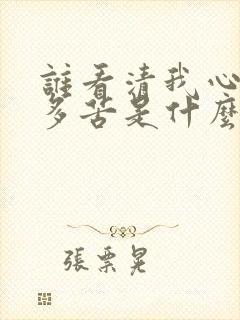 誰看清我心
多苦是什麼
張票晃